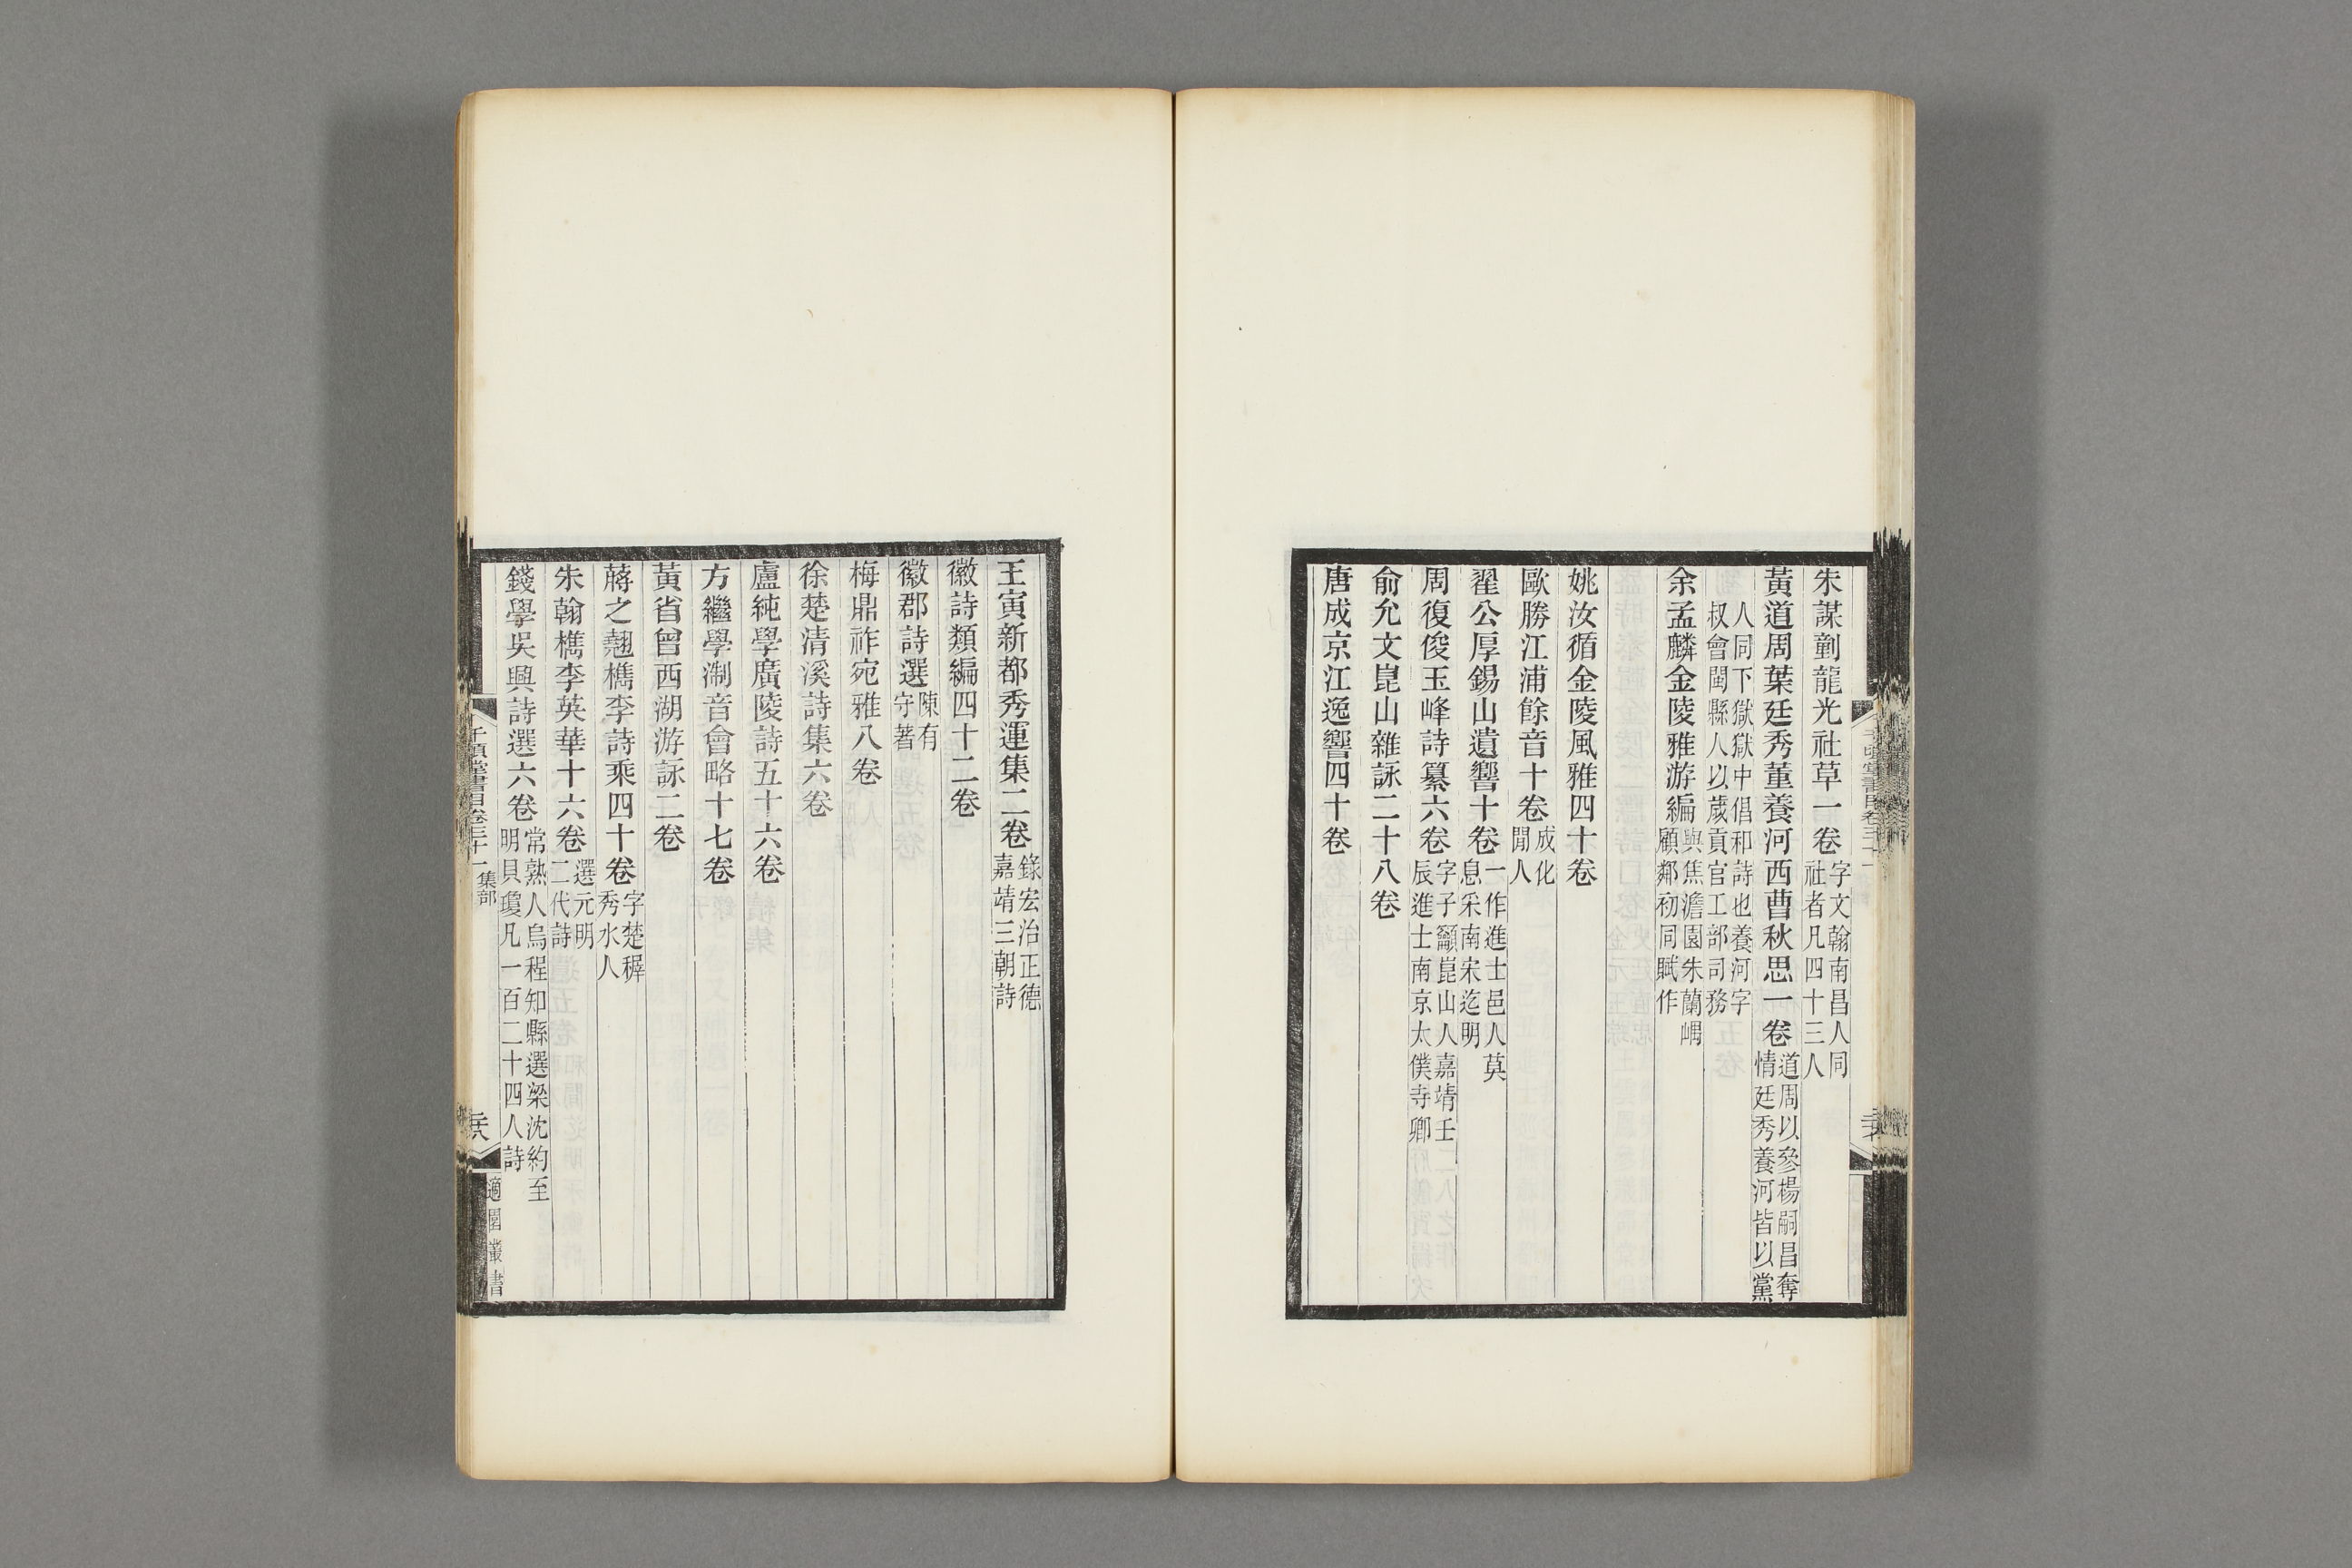 朱謀㔉龍光社草一卷字文翰南昌人同社者凡四十三人
黃道周葉廷秀董養河西曹秋思一卷道周以參楊嗣昌奪情廷秀養河皆以黨
人同下獄獄中倡和詩也養河字叔會閩縣人以歲貢官工部司務
余孟麟金陵雅游編與焦澹園朱蘭嵎顧鄰初同賦作
姚汝循金陵風雅四十卷
歐勝江浦餘音十卷成化間人
翟公厚錫山遺響十卷一作進士邑人莫息采南宋迄明
周復俊玉峰詩纂六卷字子籲崑山人嘉靖壬辰進士南京太僕寺卿
俞允文崑山雜詠二十八卷
唐成京江逸響四十卷
王寅新都秀運集二卷錄宏治正德嘉靖三朝詩
徽詩類編四十二卷
徽郡詩選陳有守著
梅鼎祚宛雅八卷
徐楚清溪詩集六卷
盧純學廣陵詩五十六卷
方繼學淛音會略十七卷
黃省曾西湖游詠二卷
蔣之翹檇李詩乘四十卷字楚穉秀水人
朱翰檇李英華十六卷選元明二代詩
錢學吳興詩選六卷常熟人烏程知縣選梁沈約至明貝瓊凡一百二十四人詩
千頃堂書目卷三十一 集部
適園叢書